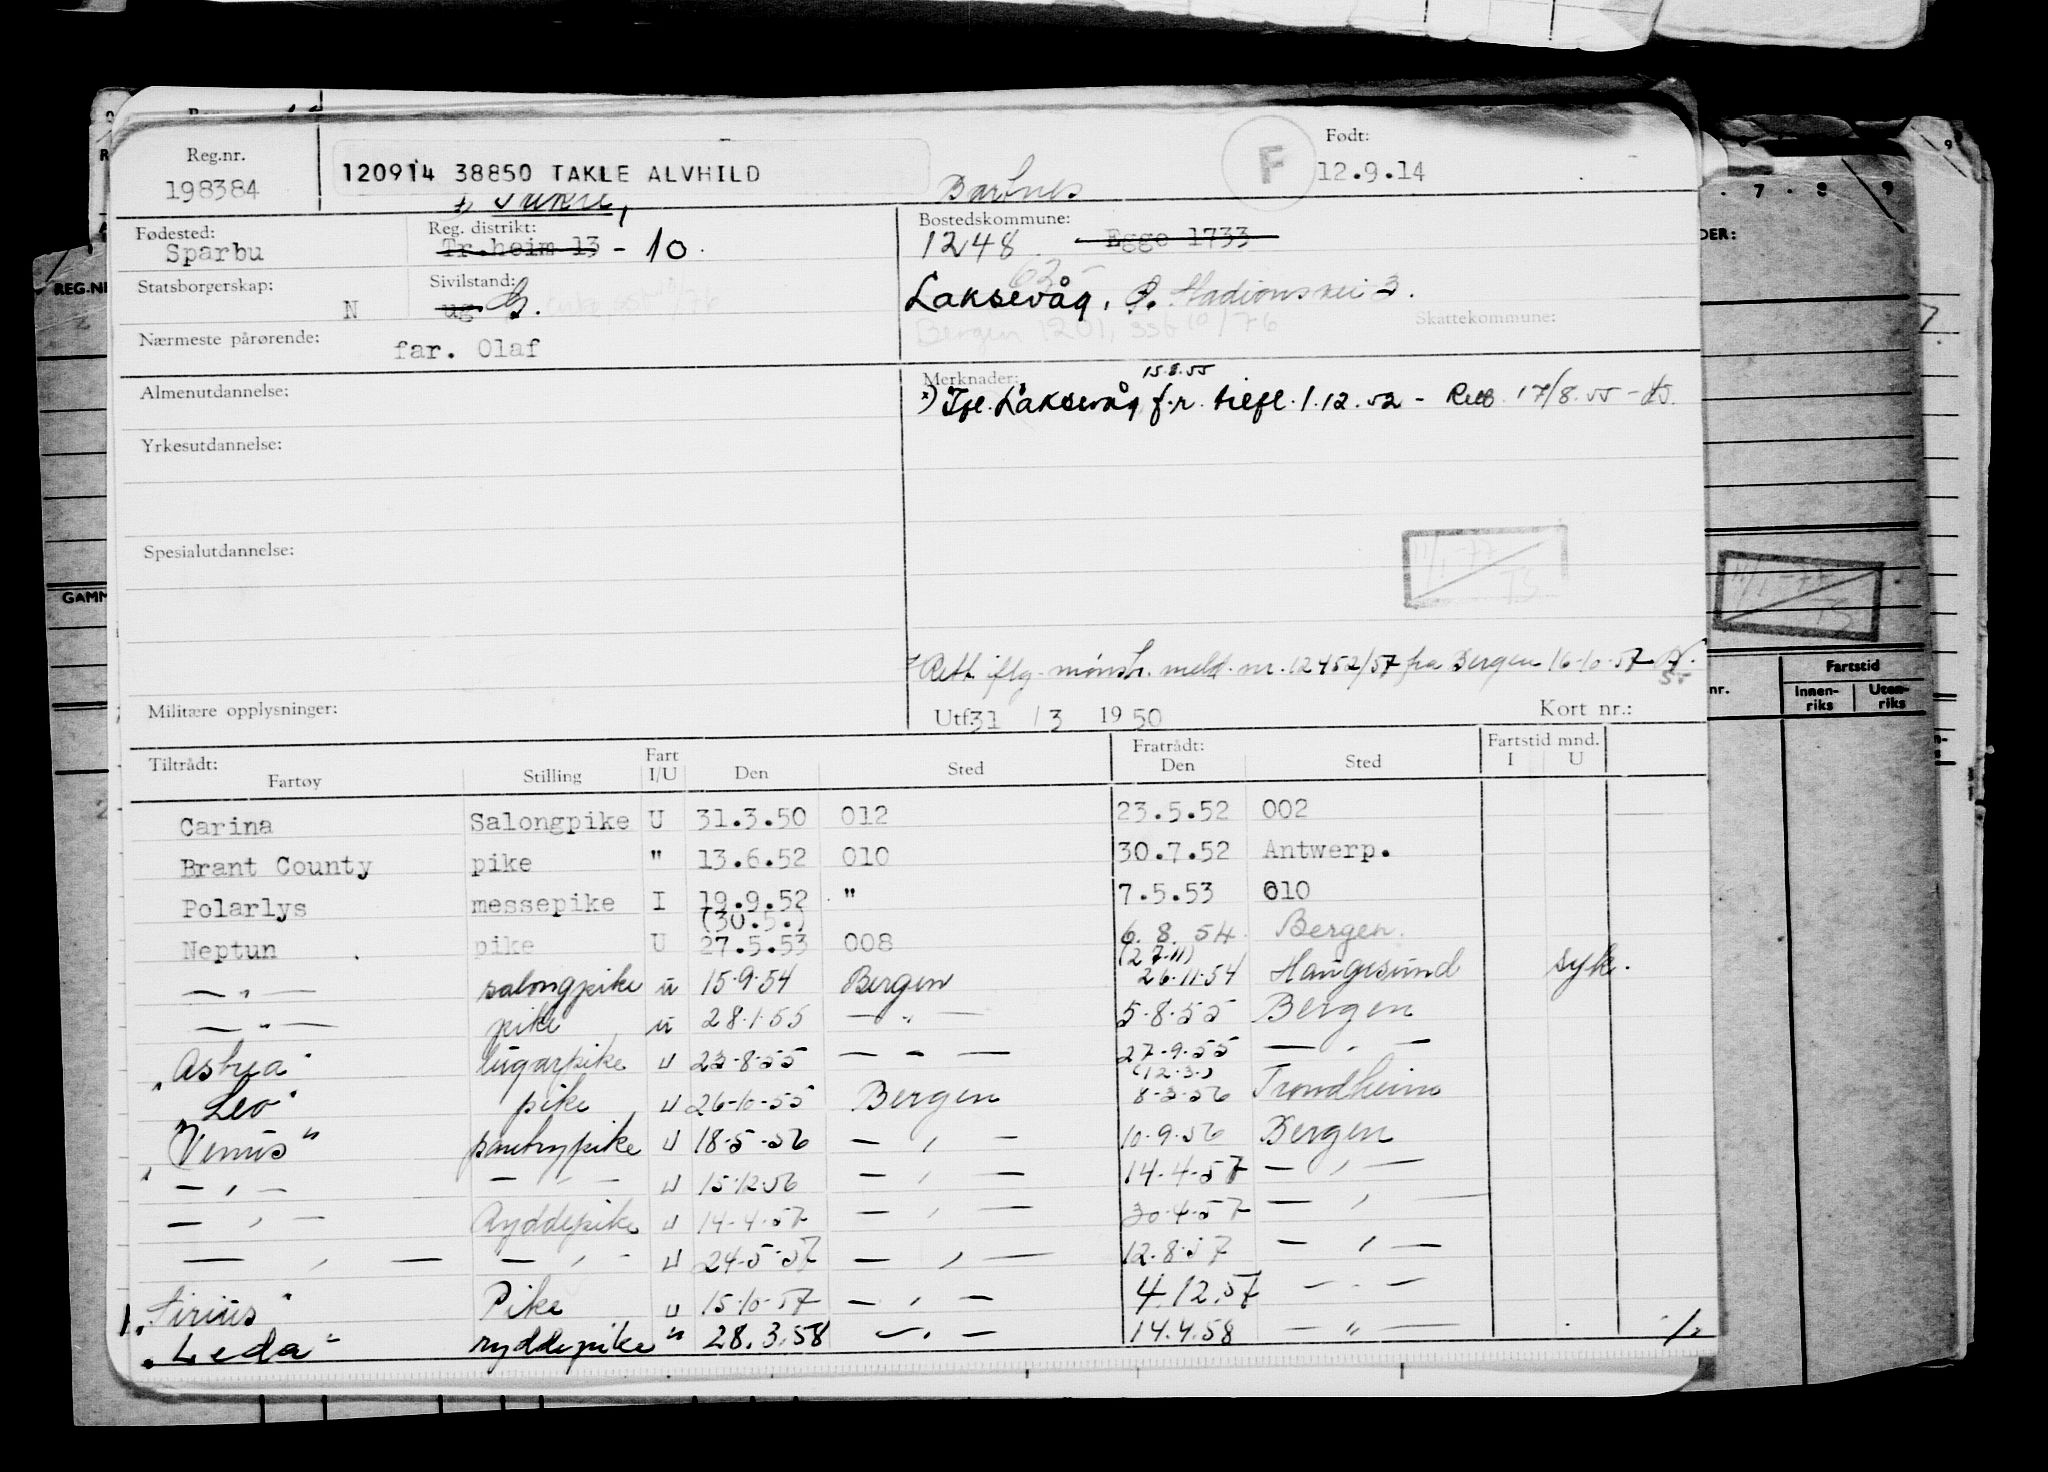 Reg.nr.
198384
120914 38850 TAKLE ALVHILD
F
Født:
12.9.14
Fødested:
Sparbu
Reg. distrikt:
Tr.heim 13 - 10.
Bostedskommune:
1248 Egge 1733
Statsborgerskap:
N
Sivilstand:
ug G.
Laksevåg. P. Stadionsvei 3.
Bergen 1201, sst 10/76
Skattekommune:
Nærmeste pårørende:
far. Olaf
Almenutdannelse:
Merknader:
15.8.55
x) Ifl. Laksevåg f.r. tilfl. 1.12.52 - 17/8.55
Yrkesutdannelse:
Spesialutdannelse:
11/1-77
TS
11/1-77
TS
Rett iflg. mønstr. meld. nr. 12452/57 fra Bergen 16-10-57
Militære opplysninger:
Utf 31 / 3 19 50
Kort nr.:
Tiltrådt:
Fartøy
Stilling
Fart I/U
Den
Sted
Fratrådt:
Den
Sted
Fartstid mnd.
I
U
Carina Salongpike U 31.3.50 012 23.5.52 002
Brant County pike " 13.6.52 010 30.7.52 Antwerp.
Polarlys messepike I 19.9.52 " 7.5.53 010
(30.5.)
Neptun pike U 27.5.53 008 6.8.54 Bergen.
(27.11)
— " — salongpike u 15.9.54 Bergen 26.11.54 Haugesund syk.
— " — pike u 28.1.55 — " — 5.8.55 Bergen
"Astrea" lugarpike u 23-8-55 — " — 27.9.55 — " —
(12.3.)
"Leo" pike u 26-10-55 Bergen 8-3-56 Trondheim
"Venus" pantrypike u 18-5-56 — " — 10.9.56 Bergen
— " — — " — u 15.12.56 — " — 14-4-57 — " —
— " — Ryddepike u 14-4-57 — " — 30-4-57 — " —
— " — — " — u 24-5-57 — " — 12.8.57 — " —
"Sirius" Pike u 15-10-57 — " — 4.12.57 — " —
"Leda" ryddepike " 28.3.58 — " — 14.4.58 — " —
REG.NR
GAMM
Fartstid
nr.
Innen-
riks
Uten-
riks